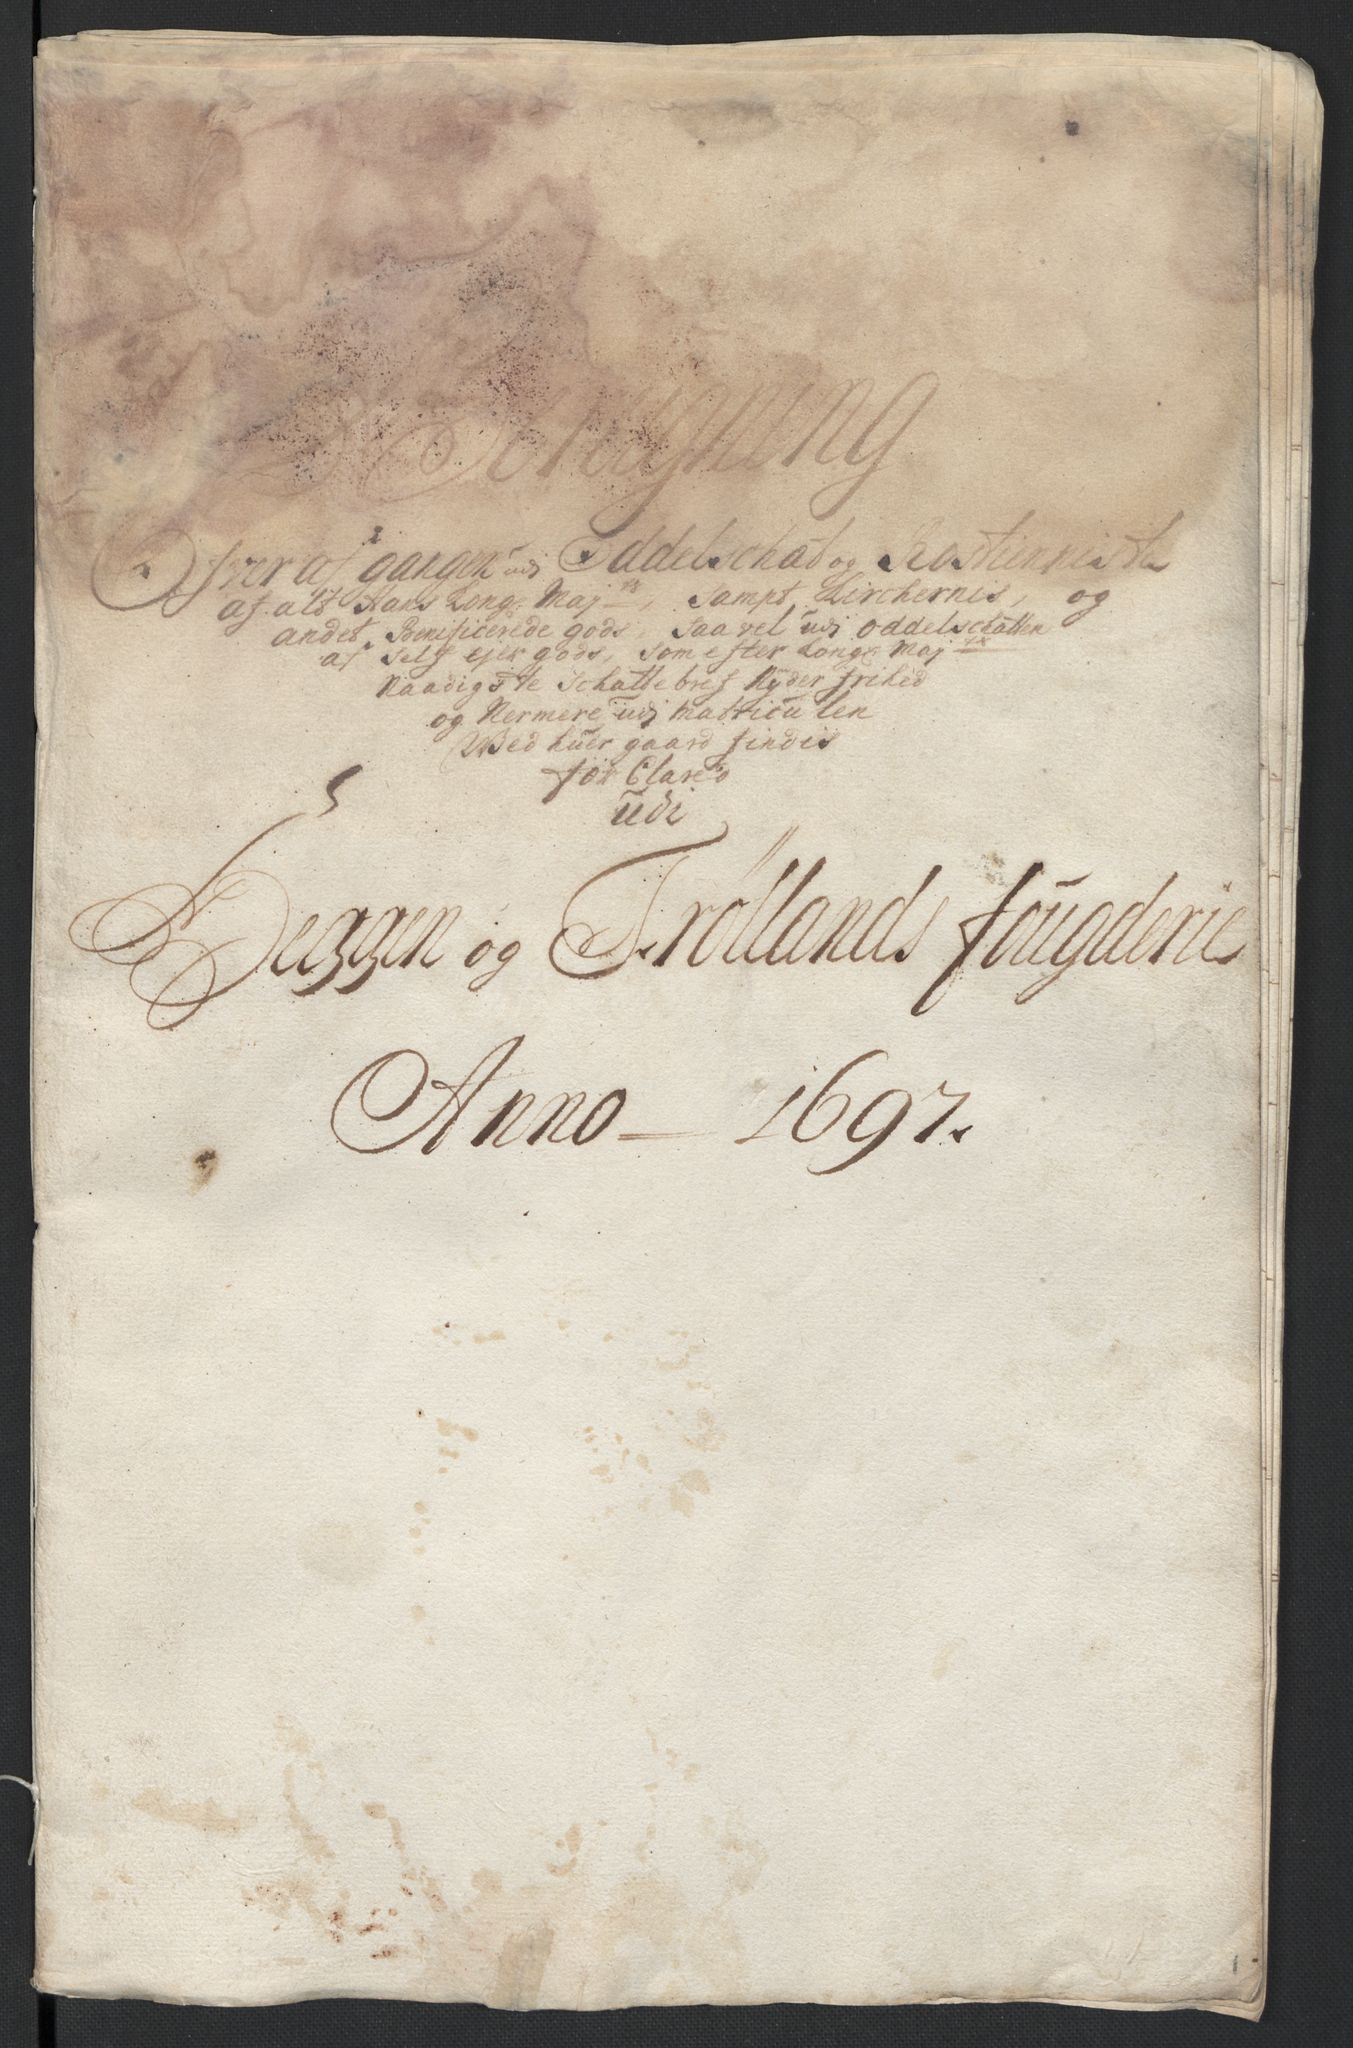 Beregning
Ofver afgangen udj Oddelschat og Rostienniste
af alt Hans Kong: Maj:ts, Sampt Kirchernis, og
andet Benificerede gods, Saavel udj oddelschatten
af Self ejer gods, som efter Kong: Maj:ts
Naadigste Schattebref Nyder frihed
og Nermere udj matriculen
Wed huer gaard findis
for Clared
udi
Heggen og Frøllands fougderie
Anno 1697.
1